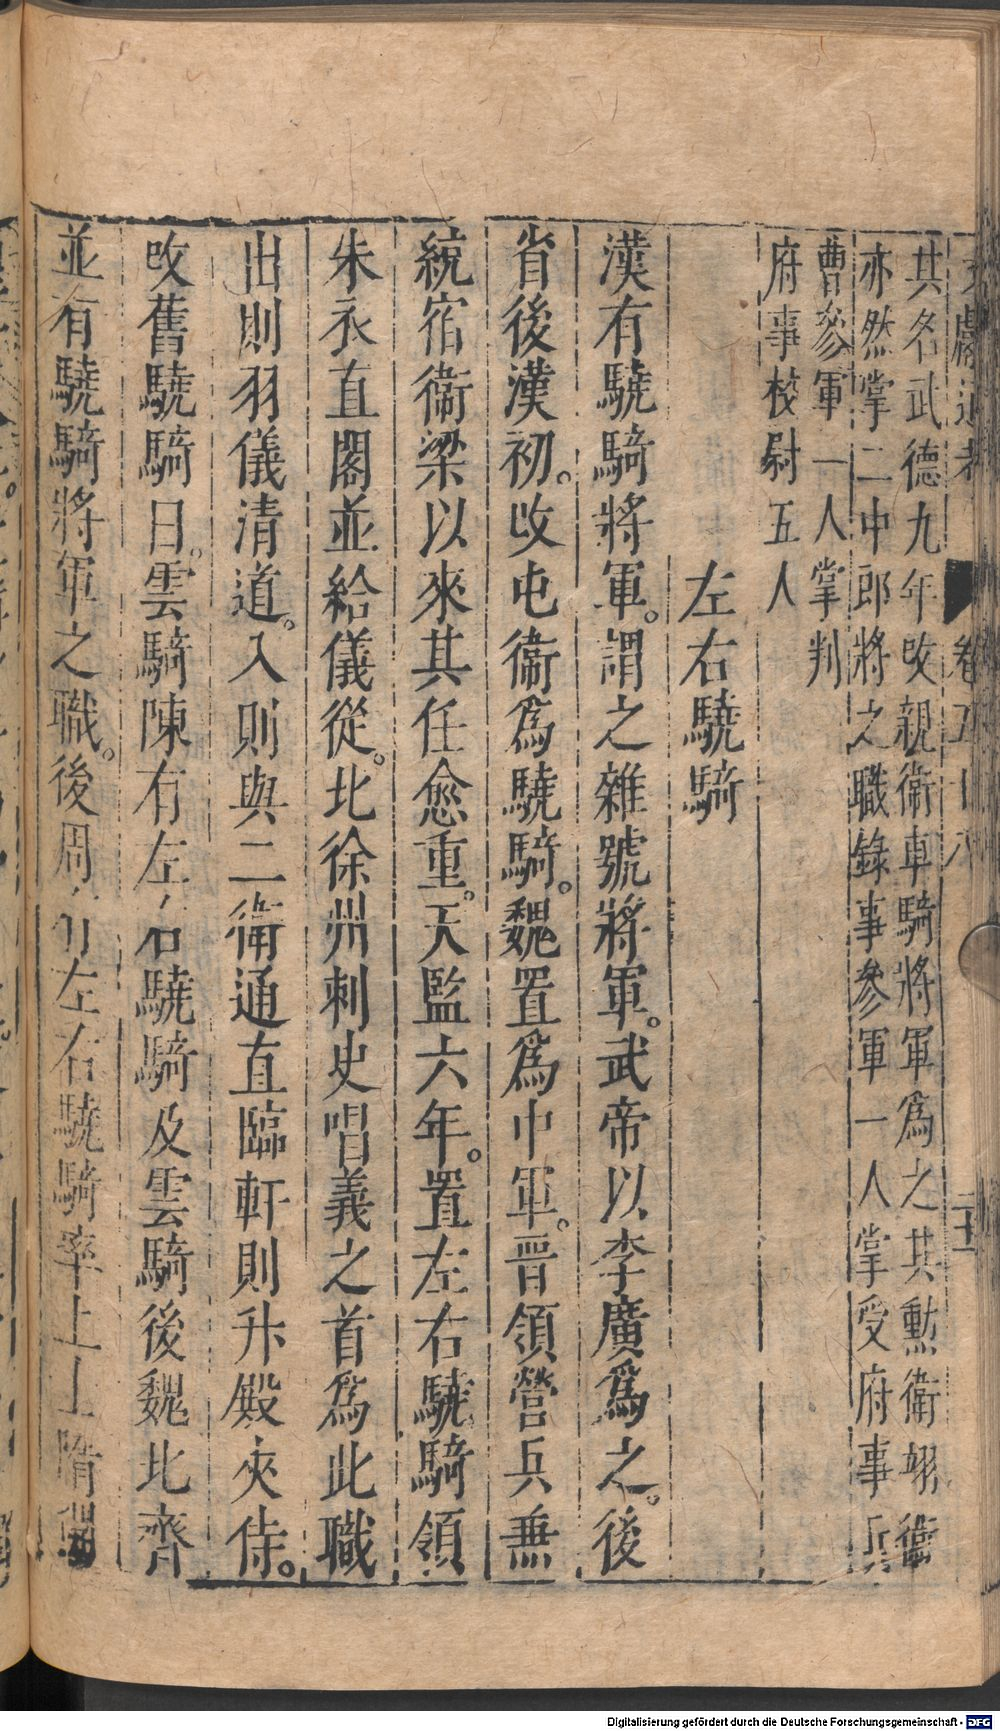 文獻通考 卷五十八
其名武德九年改親衛車騎將軍爲之其勲衛翊衛
亦然掌二中郎將之職錄事參軍一人掌受府事兵
曹參軍一人掌判
府事校尉五人
左右驍騎
漢有驍騎將軍。謂之雜號將軍。武帝以李廣爲之。後
省後漢初。改屯衛爲驍騎。魏置爲中軍。晋領營兵兼
統宿衛梁以來其任愈重。天監六年。置左右驍騎領
朱衣直閣並給儀從。北徐州刺史唱義之首爲此職
出則羽儀清道。入則與二衛通直臨軒則升殿夾侍。
改舊驍騎曰。雲騎陳有左右驍騎及雲騎後魏北齊
並有驍騎將軍之職。後周有左右驍騎率上士隋
Digitalisierung gefördert durch die Deutsche Forschungsgemeinschaft - DFG